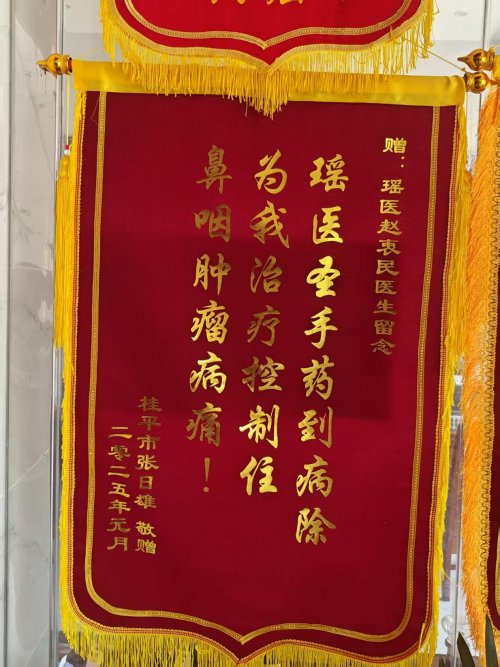 赠：瑶医赵衷民医生留念
瑶医圣手药到病除
为我治疗控制住
鼻咽肿瘤病痛！
桂平市张日雄 敬赠
二零二五年元月